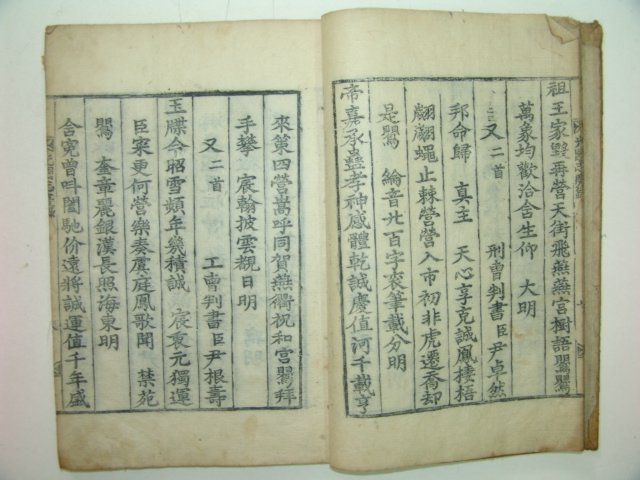 祖王家
再營天街飛燕燕宮樹語鸎鸎
萬象均歡洽含生仰　大明
又二首　刑曹判書臣尹卓然
邦命歸　真主　天心享克誠鳳棲梧
翩翩蠅止棘營營入市初非虎遷喬却
是鸎　綸音廿百字衮筆載分明
帝嘉承蠱孝神感體乾誠慶值河千載亨
來第四營嵩呼同賀燕衢祝和宮鸎拜
手攀　宸翰披雲覩日明
又二首　工曹判書臣尹根壽
玉牒今昭雪頻年幾積誠　宸衷元獨運
臣寀更何營樂奏虞庭鳳歌聞　禁苑
鸎　奎章麗銀漢長照海東明
含寃曾叫閤馳价遠將誠運值千年盛